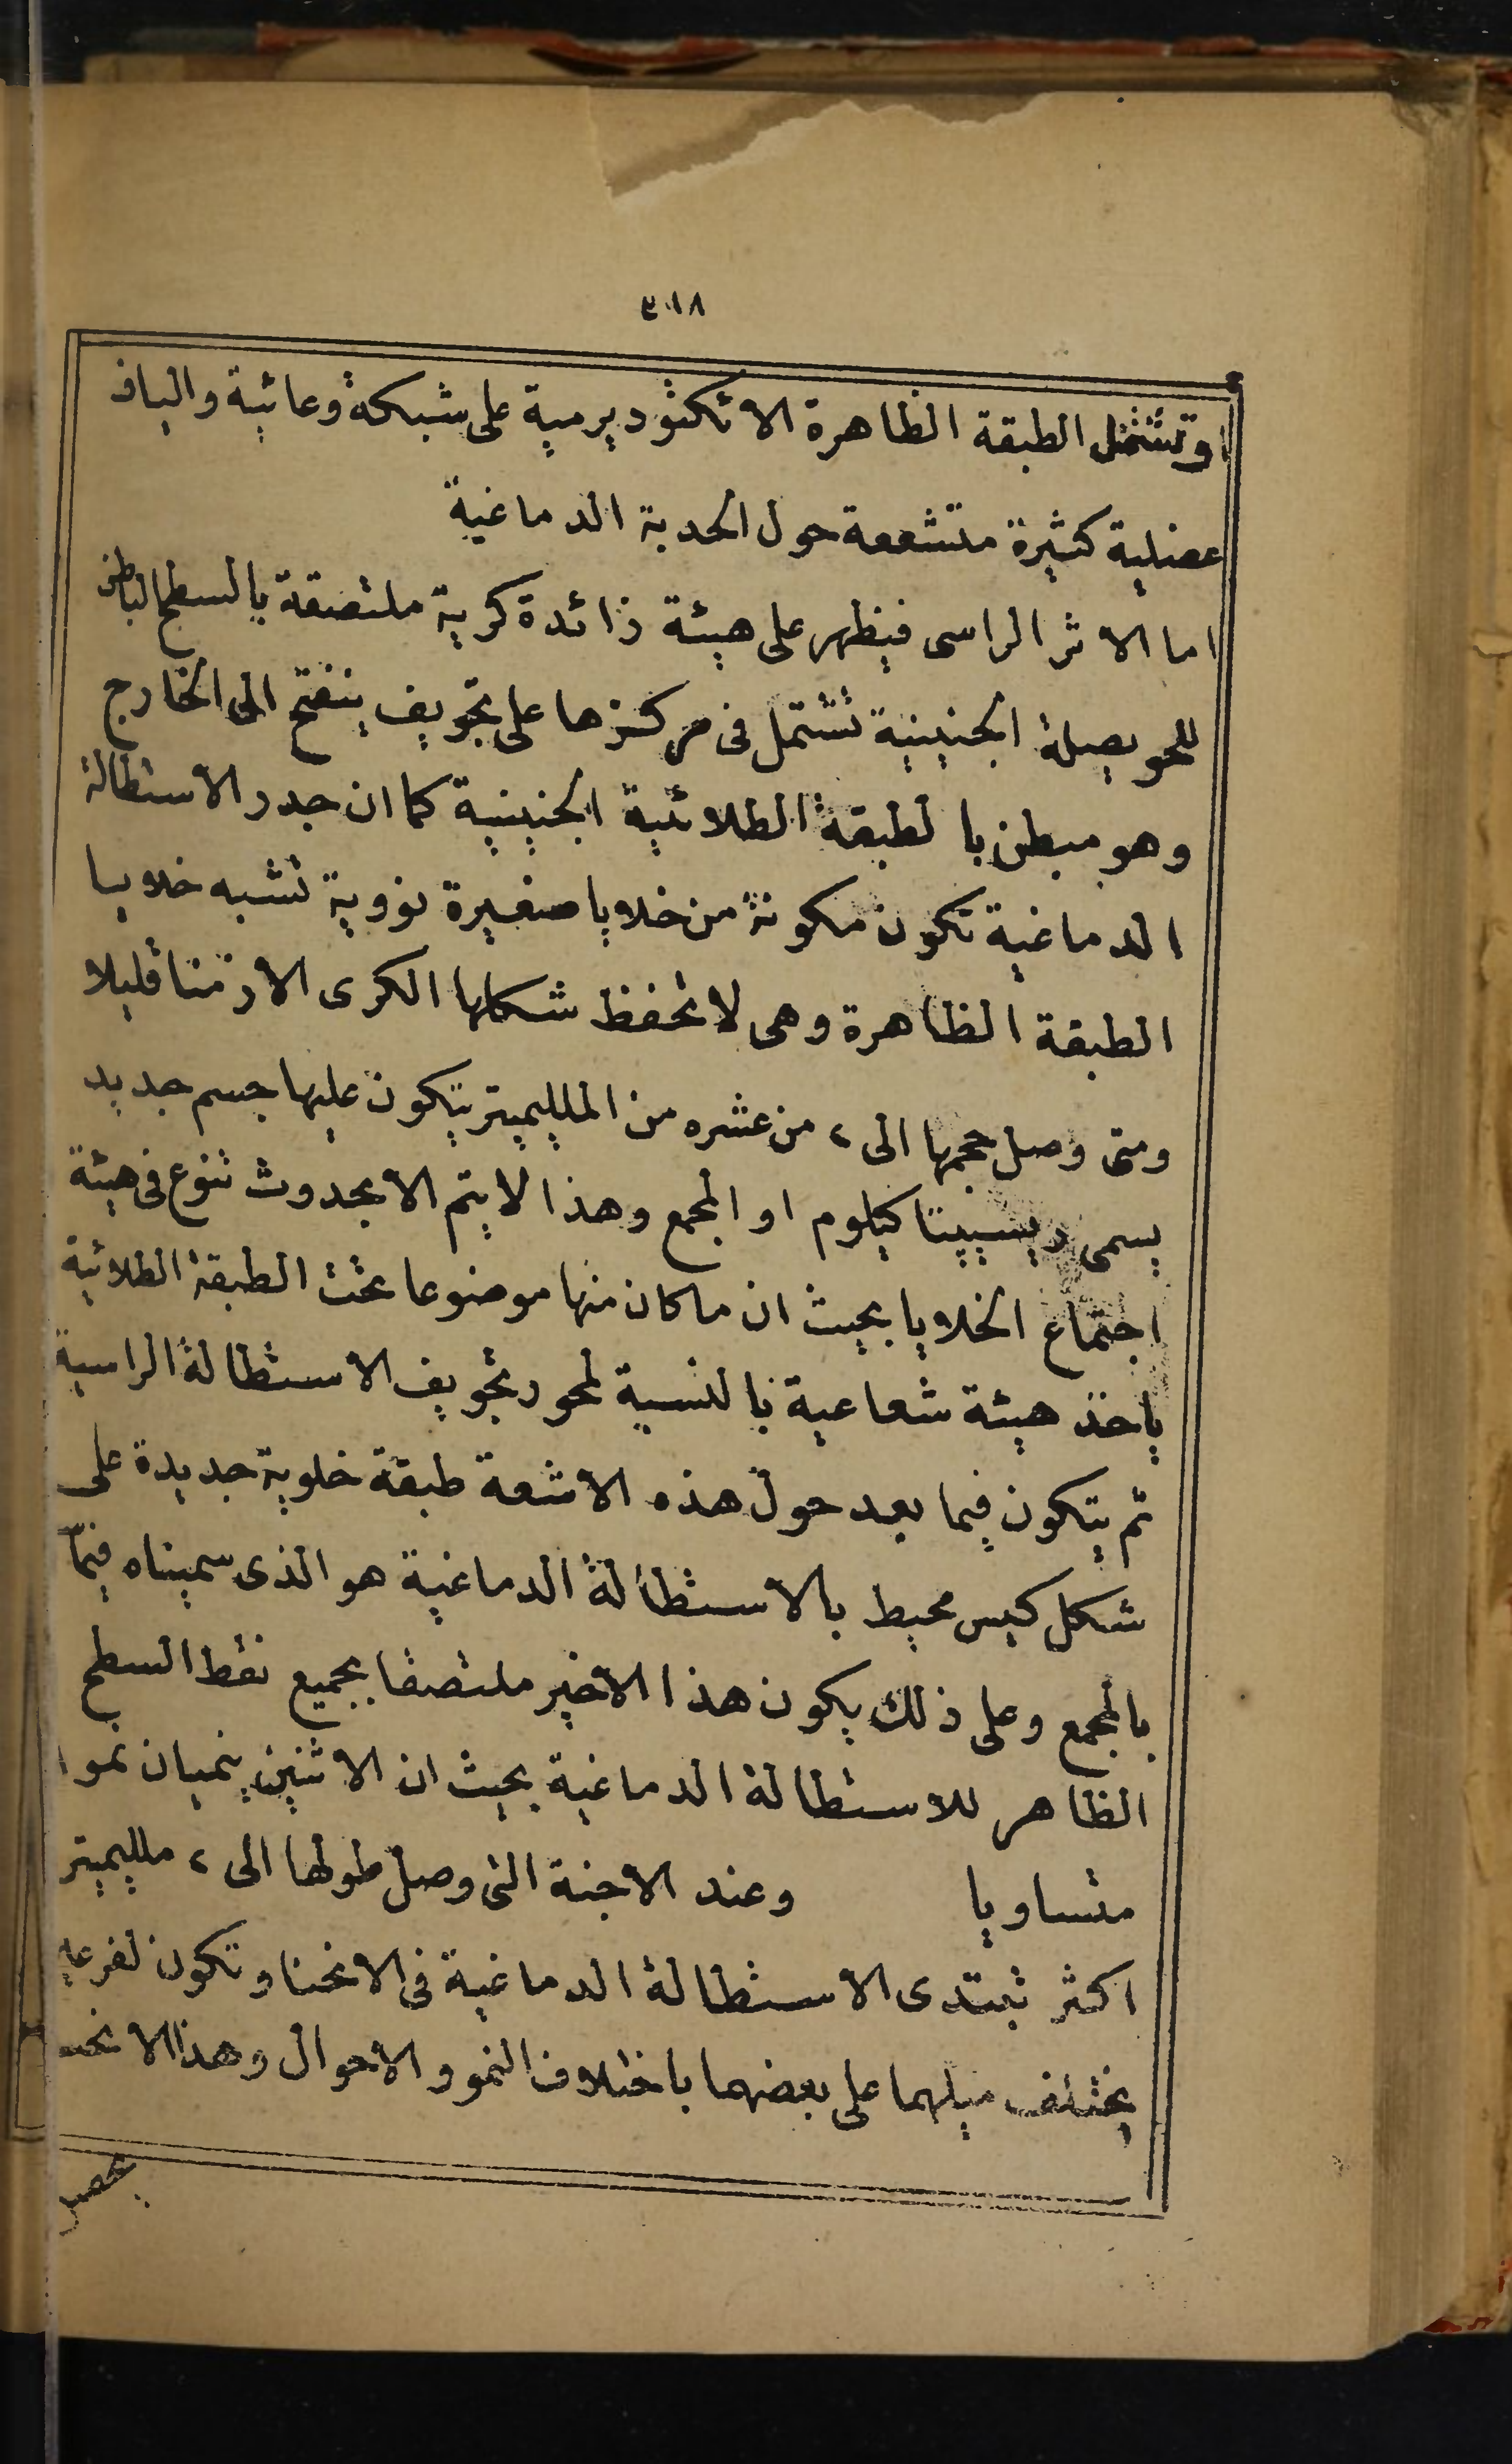 ٣١٨
وتشتمل الطبقة الظاهرة الائكتوديرمية على شبكة وعائية والياف
عضلية كثيرة متشععة حول الحدبة الدماغية
اما الاثر الراسى فيظهر على هيئة زائدة كرية ملتصقة بالسطح الباطن
للحويصلة الجنينية تشتمل فى مركزها على تجويف ينفتح الى الخارج
وهو مبطن بالطبقة الطلائية الجنينية كما ان جدر الاستطالة
الدماغية تكون مكونة من خلايا صغيرة نووية تشبه خلايا
الطبقة الظاهرة وهى لا تحفظ شكلها الكرى الا زمنا قليلا
ومتى وصل حجمها الى ٢ من عشره من الملليميتر يتكون عليها جسم جديد
يسمى ريسيپتاكيلوم او المجمع وهذا لا يتم الا بحدوث تنوع فى هيئة
اجتماع الخلايا بحيث ان ما كان منها موضوعا تحت الطبقة الطلائية
ياخذ هيئة شعاعية بالنسبة لمحور تجويف الاستطالة الراسية
ثم يتكون فيما بعد حول هذه الاشعة طبقة خلوية جديدة على
شكل كيس محيط بالاستطالة الدماغية هو الذى سميناه فيما
بالمجمع وعلى ذلك يكون هذا الاخير ملتصقا بجميع نقط السطح
الظاهر للاستطالة الدماغية بحيث ان الاثنين ينميان نموا
متساويا وعند الاجنة التى وصل طولها الى ٢ ملليميتر
اكثر تبتدى الاستطالة الدماغية فى الانحنا وتكون لفرعيه
يختلف ميلهما على بعضهما باختلاف النمو والاحوال وهذا الانحنـ
يحصل